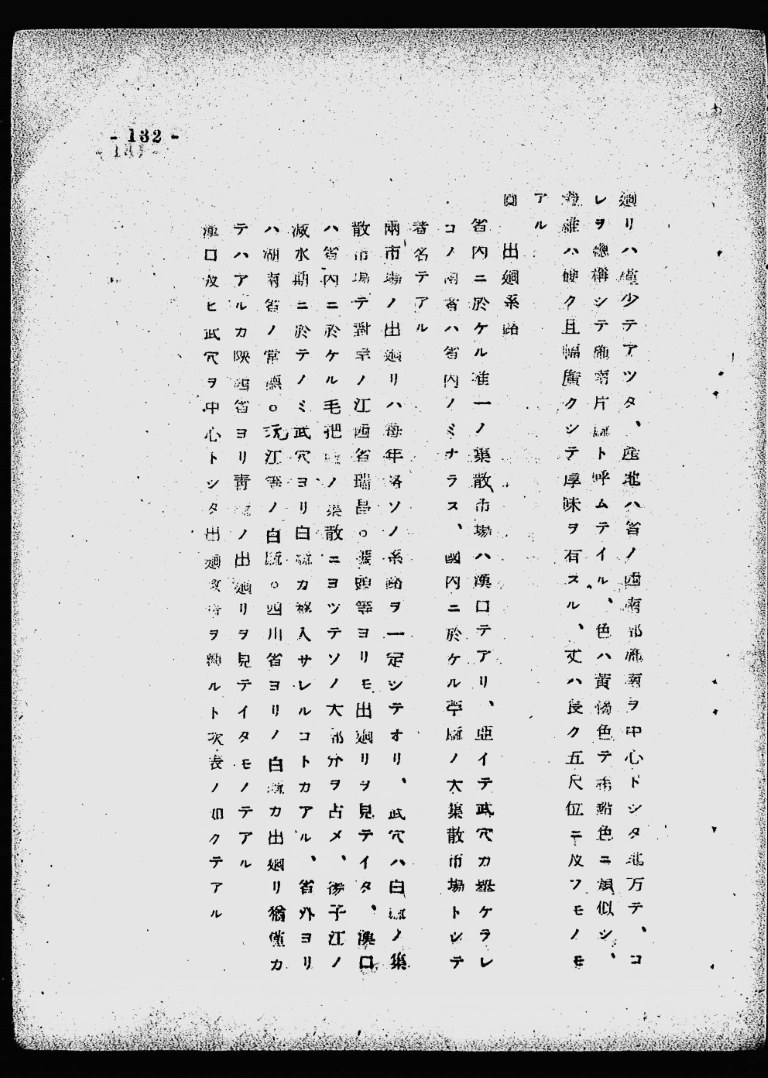 - 132 -
廻リハ僅少テアツタ、産地ハ省ノ西南部施南ヲ中心トシタ地方テ、コ
レヲ總稱シテ施南片麻ト呼ムテイル、色ハ黄褐色テ赤鉛色ニ類似シ、
纖維ハ硬ク且幅廣クシテ厚味ヲ有スル、丈ハ長ク五尺位ニ及フモノモ
アル
回 出廻系路
省内ニ於ケル唯一ノ集散市場ハ漢口テアリ、亞イテ武穴カ擧ケラレ
コノ兩者ハ省内ノミナラス、國内ニ於ケル苧麻ノ大集散市場トシテ
著名テアル
兩市場ノ出廻リハ毎年略ソノ系路ヲ一定シテオリ、武穴ハ白麻ノ集
散市場テ對岸ノ江西省瑞昌。頭等ヨリモ出廻リヲ見テイタ、漢口
ハ省内ニ於ケル毛把麻ノ集散ニヨツテソノ大部分ヲ占メ、揚子江ノ
減水期ニ於テノミ武穴ヨリ白麻カ移入サレルコトカアル、省外ヨリ
ハ湖南省ノ常德。沅江等ノ白麻。四川省ヨリノ白麻カ出廻リ猶僅カ
テハアルカ陝西省ヨリ青麻ノ出廻リヲ見テイタモノテアル
漢口及ヒ武穴ヲ中心トシタ出廻ヲルト次表ノ如クテアル